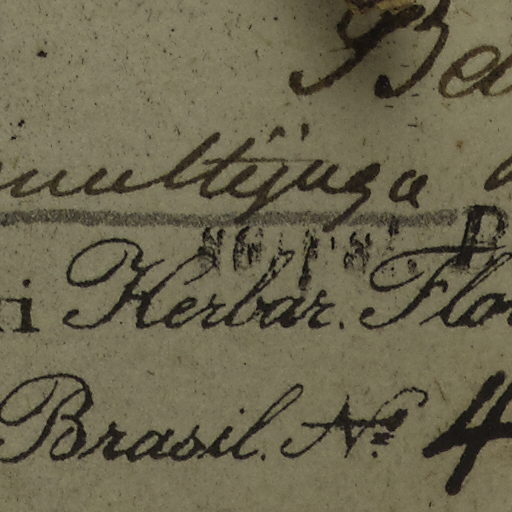 Be
multijuga
i Herbar. Flor
Brasil. No. 4